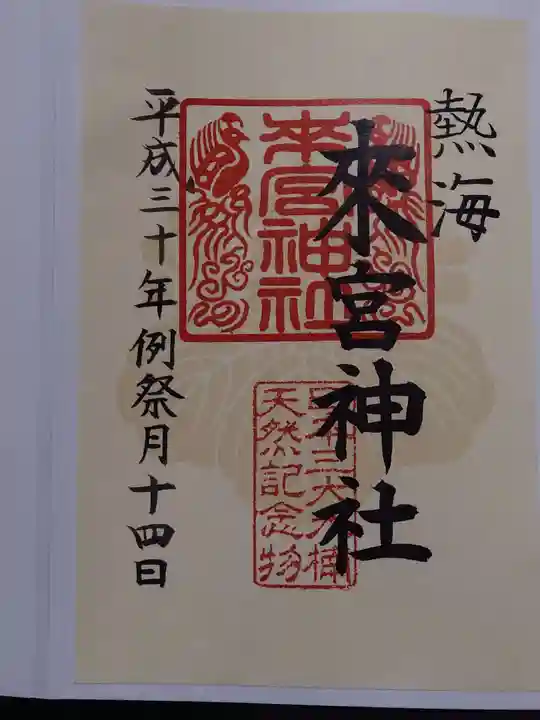 熱海
來宮神社
來宮神社
天然記念物
平成三十年例祭月十四日